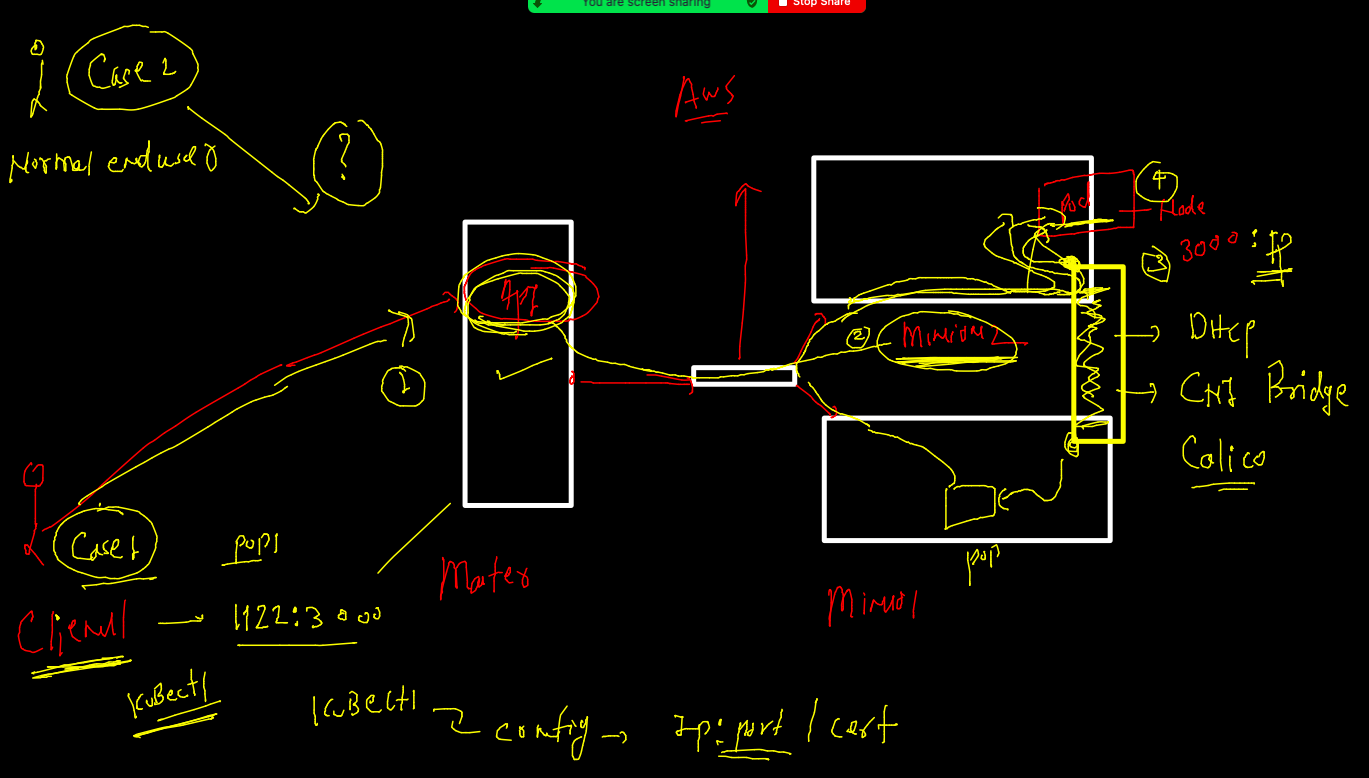 You are screen sharing
Stop Share
Case 2
?
Normal end user
AWS
4
Pod
Node
3
3000 : IP
API
1
2
Minion2
DHCP
CNI Bridge
Calico
Case 1
POP1
Master
POP
Client1
1122:3000
Minion1
KuBectl
KuBectl
config → Ip:port / cert